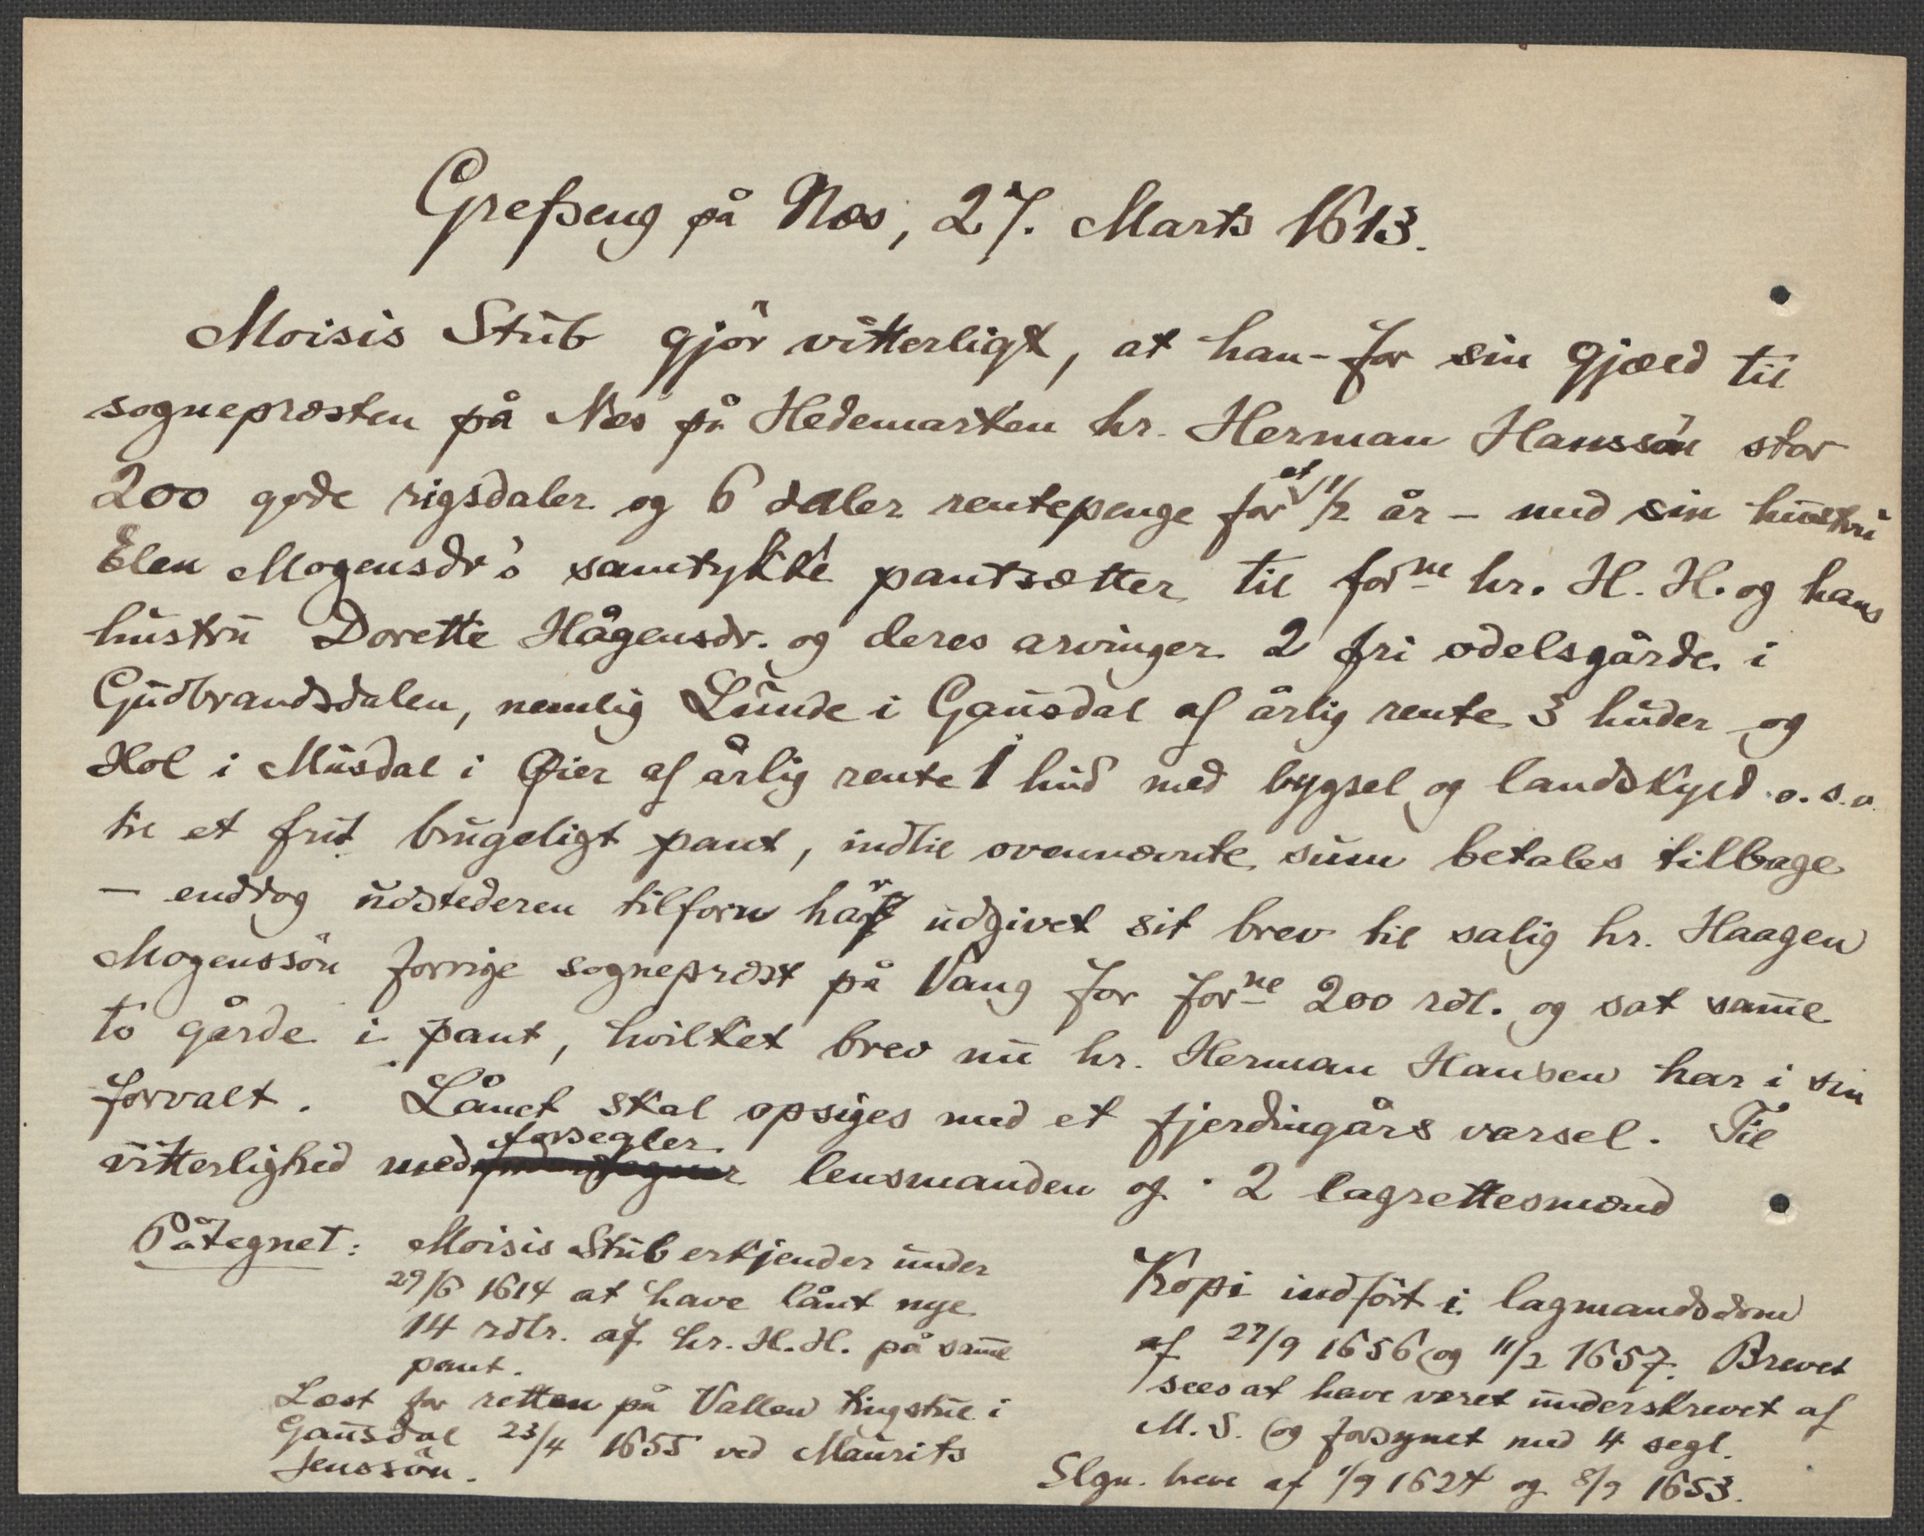 Grefseng på Næs, 27. Marts 1613.
Moisis Stub gjör vitterligt, at han - for sin gjæld til
sognepræsten på Næs på Hedemarken hr. Herman Hanssön stor
200 gode rigsdaler og 6 daler rentepenge for et 1/2 år - med sin hustru
Elen Mogensdr's samtykke pantsætter til forne hr. H. H. og hans
hustru Dorette Hågensdr. og deres arvinger 2 fri odelsgårde i
Gudbrandsdalen, nemlig Lunde i Gausdal af årlig rente 3 huder og
Hol i Musdal i Øier af årlig rente 1 hud med bygsel og landskyld o.s.v.
til et frit brugeligt pant, indtil ovennævnte sum betales tilbage
- enddog udstederen tilforn har udgivet sit brev til salig hr. Haagen
Mogenssön forrige sogneprest på Vang for forne 200 rdl. og sat samme
to gårde i pant, hvilket brev nu hr. Herman Hansen har i sin
forvalt. Lånet skal opsiges med et fjerdingårs varsel. Til
vitterlighed medforsegler lensmanden og 2 lagrettesmænd
Påtegnet: Moisis Stub erkjender under
29/6 1614 at have lånt nye
14 rdlr. af hr. H. H. på samme
pant.
Læst for retten på Vallen tingstue i
Gausdal 23/4 1655 ved Maurits
Jenssön.
Kopi indfört i lagmandsdom
af 27/9 1656 og 11/2 1657. Brevet
sees at have været underskrevet af
M. S. og forsynet med 4 segl.
Slgn. breve af 1/9 1624 og 8/9 1653.